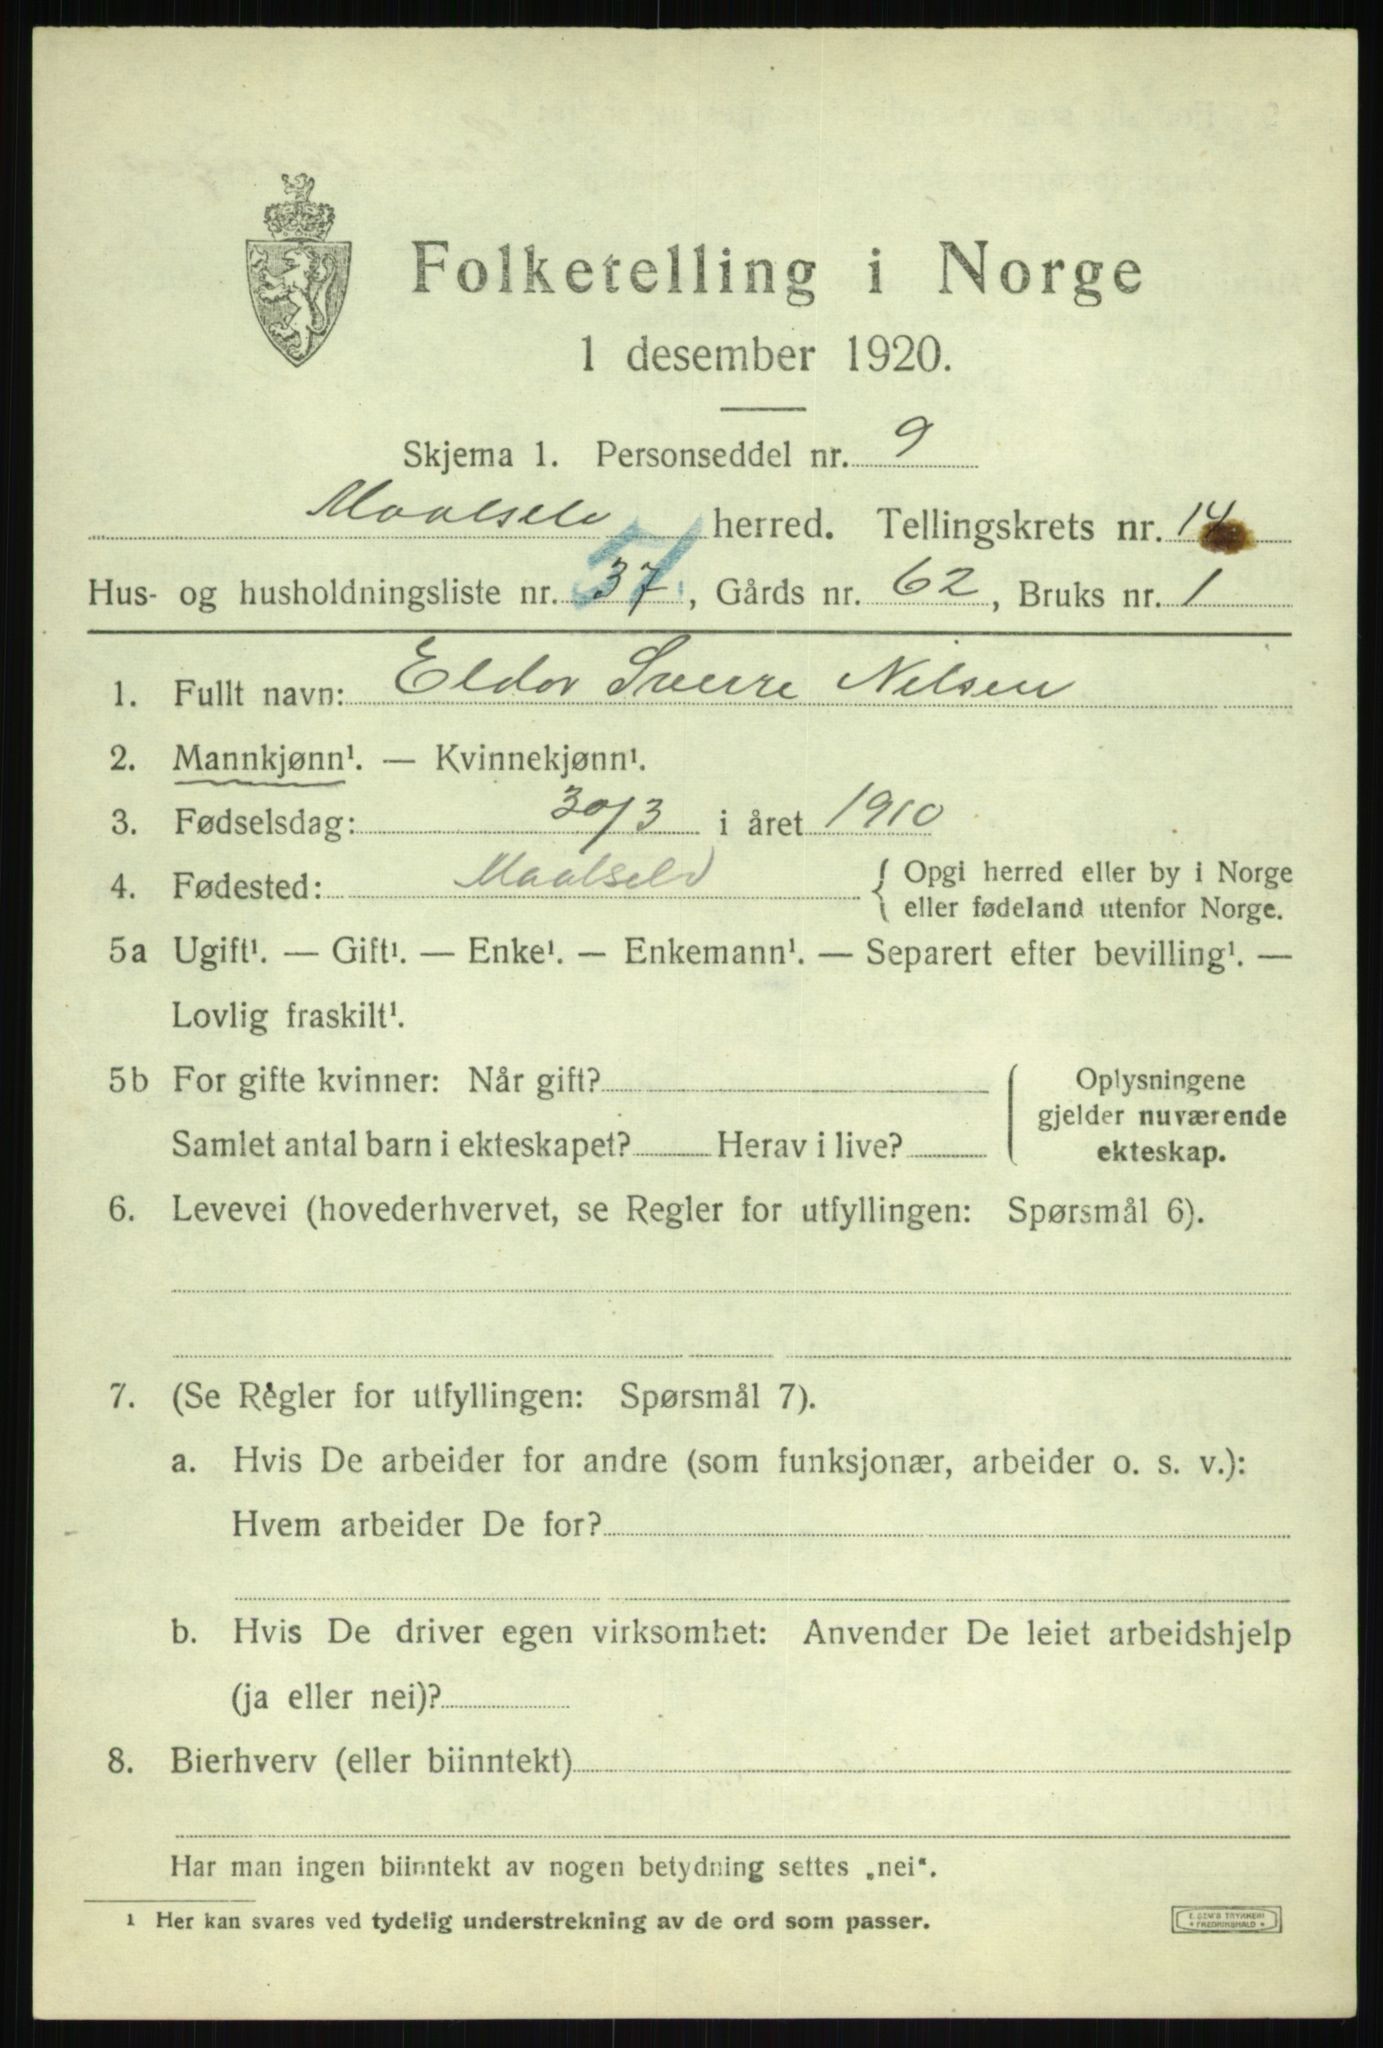 Folketelling i Norge
1 desember 1920.
Skjema 1. Personseddel nr. 9
Maalselv herred. Tellingskrets nr. 14
51
Hus- og husholdningsliste nr. 37, Gårds nr. 62, Bruks nr. 1
1. Fullt navn: Eldor Sverre Nilsen
2. Mannkjønn¹. — Kvinnekjønn¹.
3. Fødselsdag: 30/3 i året 1910
4. Fødested: Maalselv { Opgi herred eller by i Norge
eller fødeland utenfor Norge.
5a Ugift¹. — Gift¹. — Enke¹. — Enkemann¹. — Separert efter bevilling¹. —
Lovlig fraskilt¹.
5b For gifte kvinner: Når gift?
Samlet antal barn i ekteskapet? Herav i live?
Oplysningene
gjelder nuværende
ekteskap.
6. Levevei (hovederhvervet, se Regler for utfyllingen: Spørsmål 6).
7. (Se Regler for utfyllingen: Spørsmål 7).
a. Hvis De arbeider for andre (som funksjonær, arbeider o. s. v.):
Hvem arbeider De for?
b. Hvis De driver egen virksomhet: Anvender De leiet arbeidshjelp
(ja eller nei)?
8. Bierhverv (eller biinntekt)
Har man ingen biinntekt av nogen betydning settes „nei“.
¹ Her kan svares ved tydelig understrekning av de ord som passer.
E. SEM'S TRYKKERI
* FREDRIKSHALD *